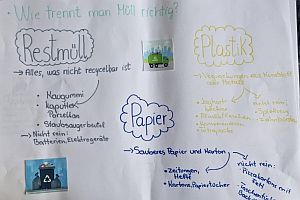 • Wie trennt man Müll richtig?
Restmüll
→ Alles, was nicht recycelbar ist
• Kaugummi
• kaputtes Porzellan
• Staubsaugerbeutel
→ Nicht rein:
Batterien, Elektrogeräte
Plastik
→ Verpackungen aus Kunststoff
oder Metall
• Joghurt
becher
nicht rein:
Papier
→ Sauberes Papier und Karton
• Zeitungen,
Hefte
• Kartons, Papiertücher
nicht rein:
• Pizzakartons mit
Fett